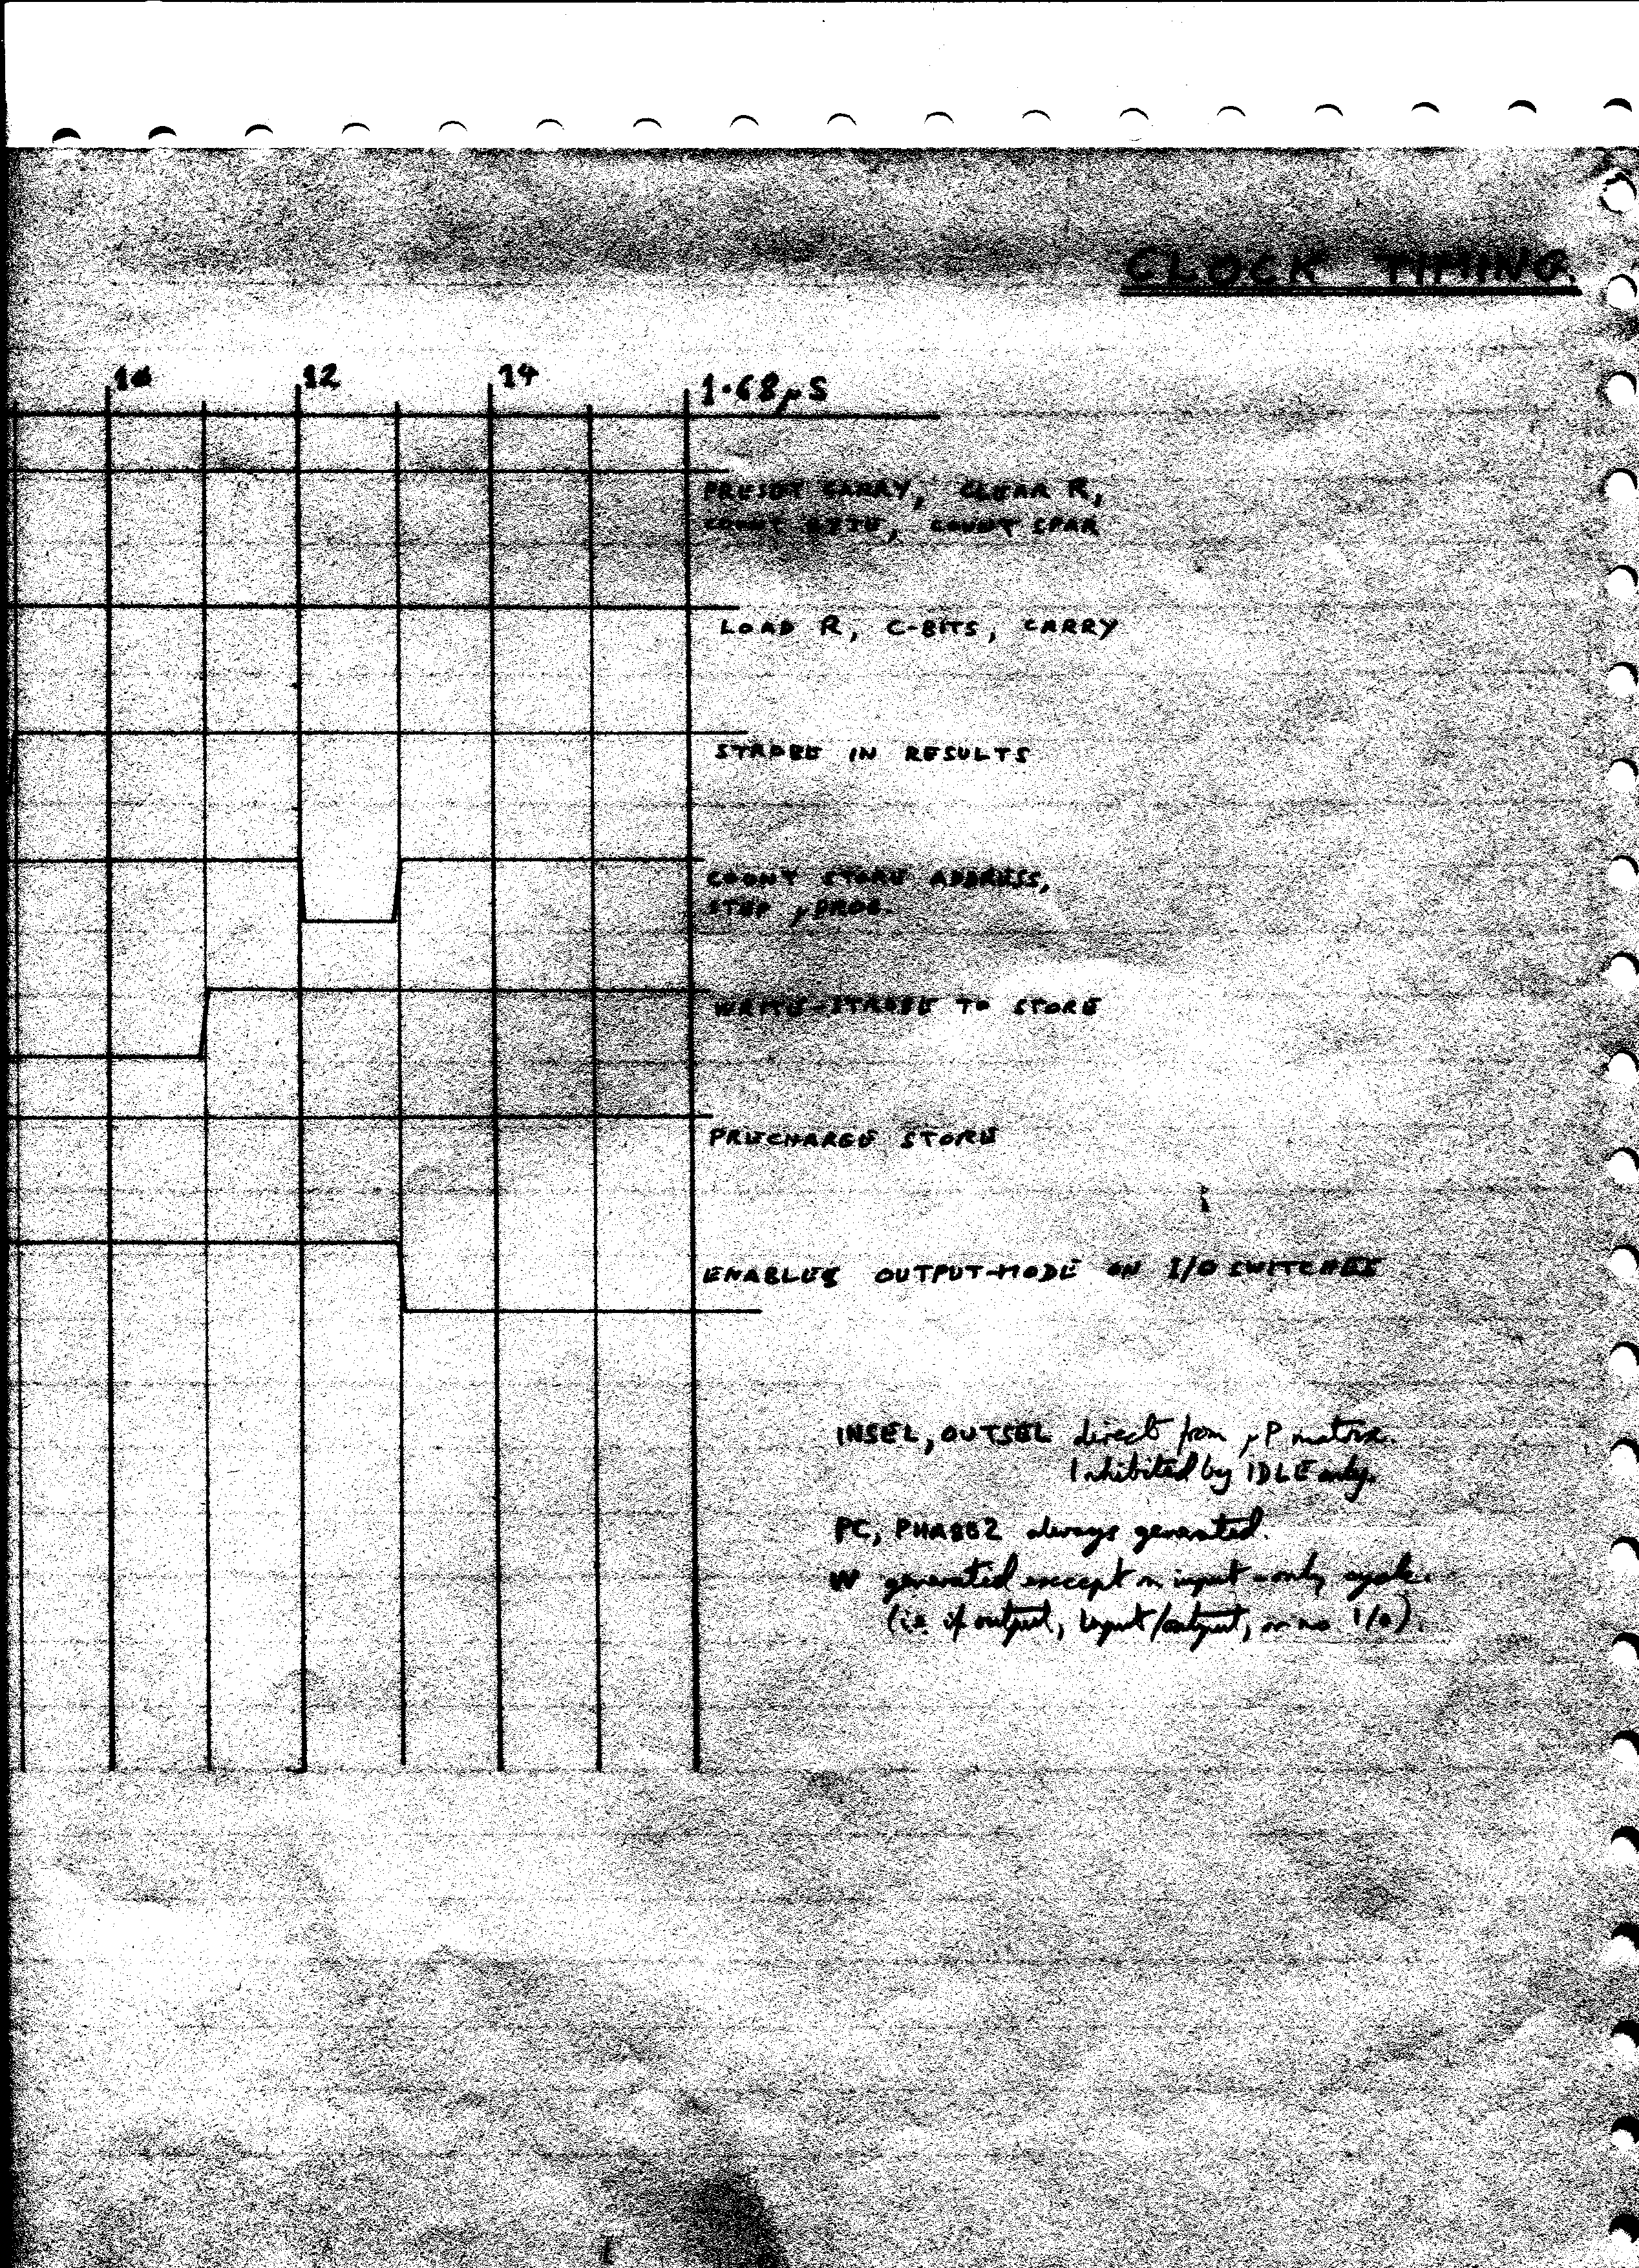 CLOCK TIMING.
10 12 14 1.68μS
PRESET CARRY, CLEAR R,
COUNT , COUNT SPAR
LOAD R, C-BITS, CARRY
STROBE IN RESULTS
COUNT STORE ADDRESS,
STEP μPROG.
WRITE-STROBE TO STORE
PRECHARGE STORE
ENABLES OUTPUT-MODE ON I/O SWITCHES
INSEL, OUTSEL direct from μP matrix.
Inhibited by IDLE only.
PC, PHASE2 always generated.
W generated except on input-only cycle.
(ie if output, input/output, or no I/O).